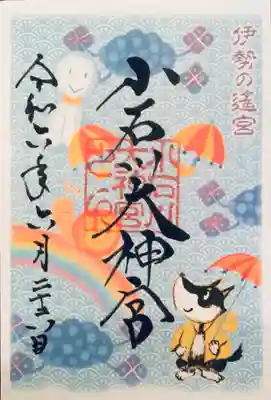 伊勢の遙宮
小石川大神宮
令和六年六月二十日